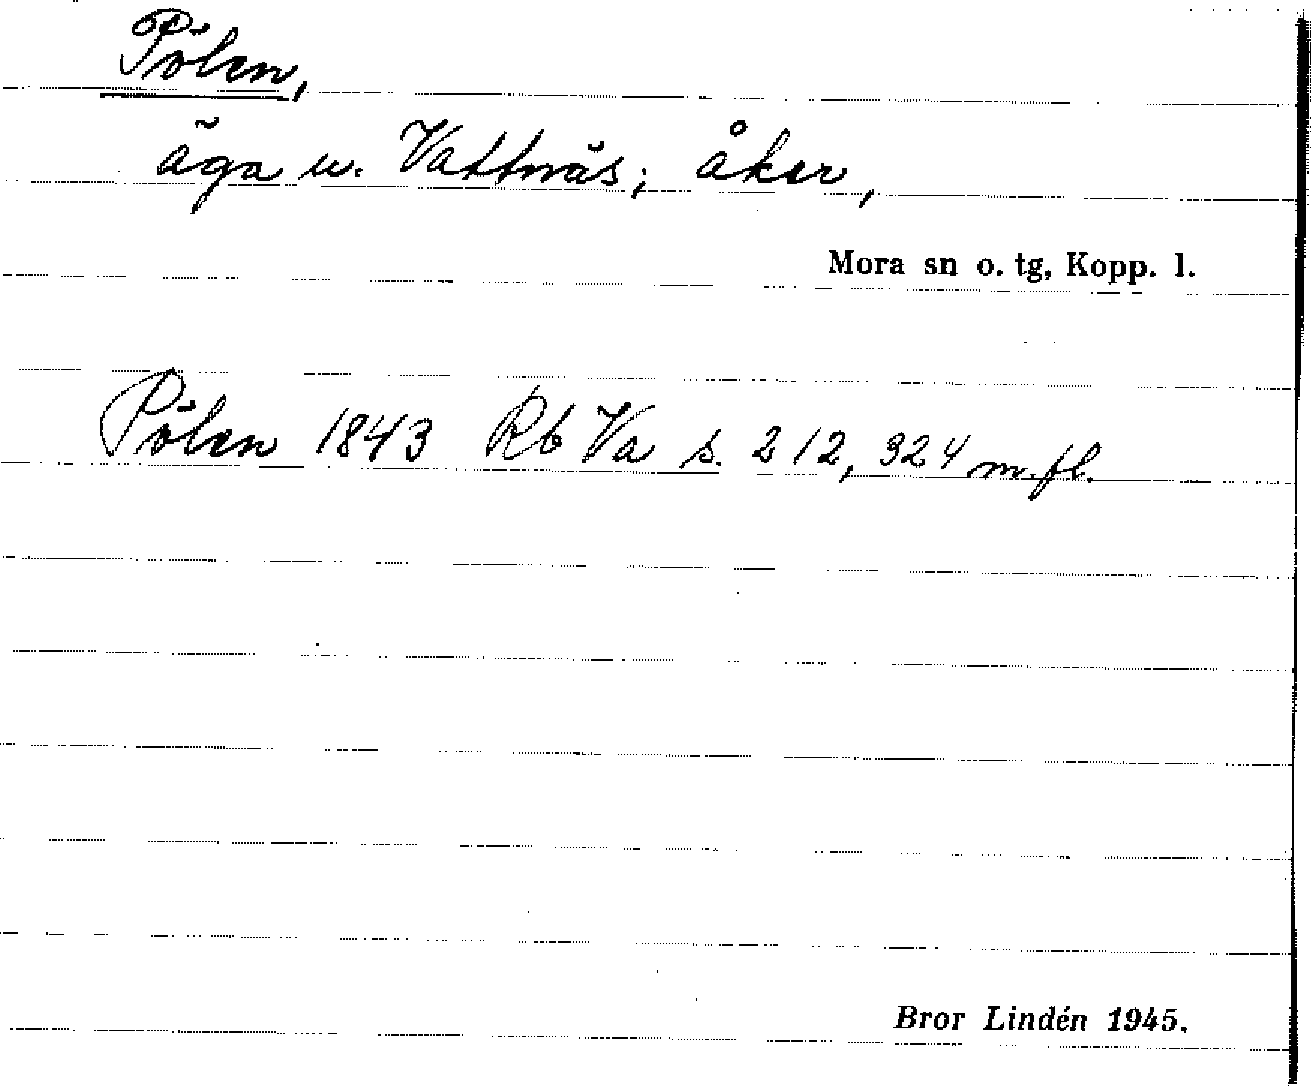 Pölen,
äga u. Vattnäs; åker,
Mora sn o. tg, Kopp. l.
Pölen 1843 Rb Va s. 212, 324 m. fl.
Bror Lindén 1945.